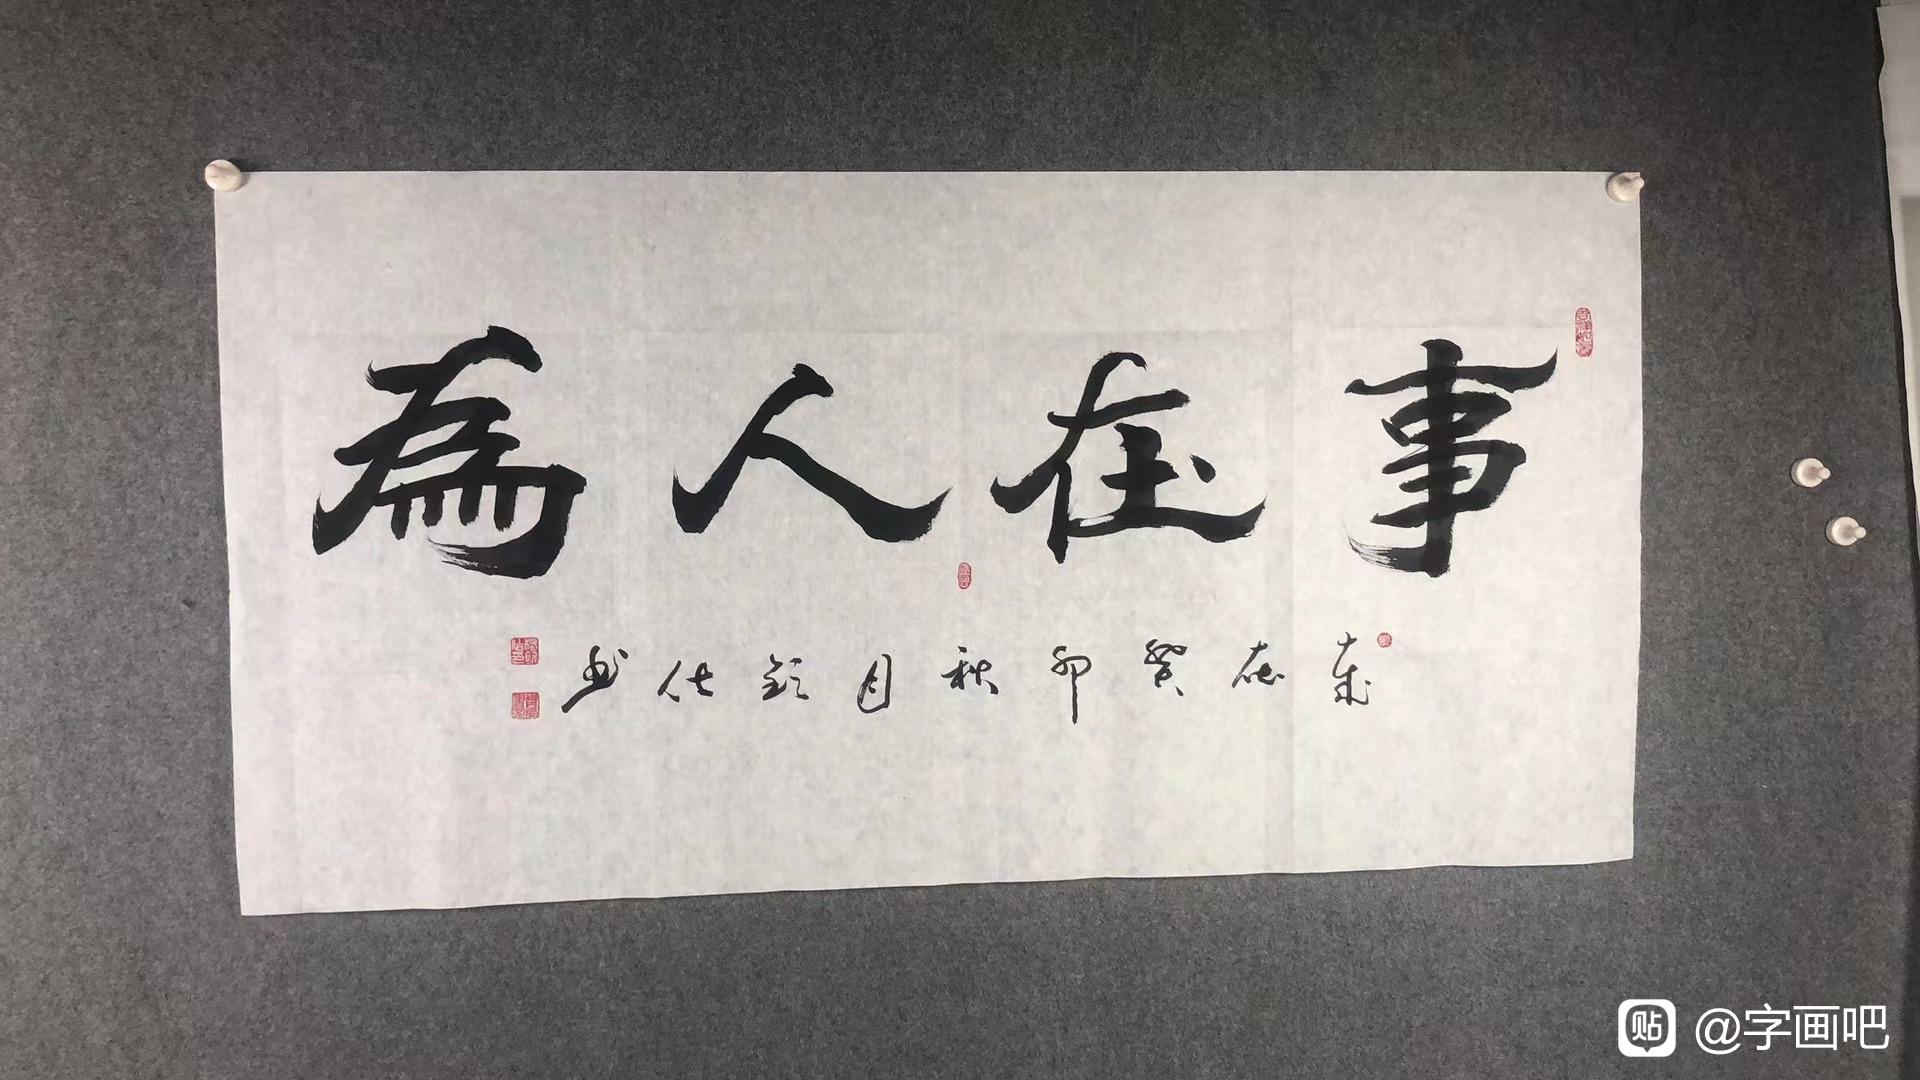 事在人為
歲在癸卯秋月
書
貼 @字画吧